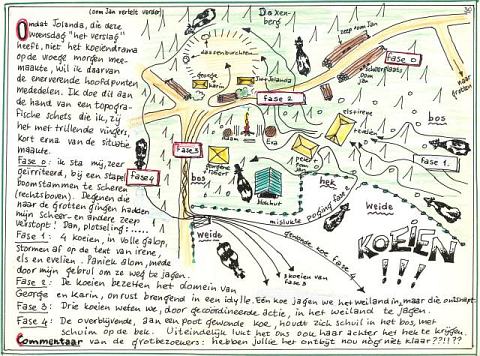 (oom Jan vertelt verder)
30
Omdat Jolanda, die deze
woensdag "het verslag"
heeft, niet het koeiendrama
op de vroege morgen mee-
maakte, wil ik daarvan
de enerverende hoofdpunten
mededelen. Ik doe dit aan
de hand van een topogra-
fische schets die ik, zij
het met trillende vingers,
kort erna van de situatie
maakte.
Fase 0: ik sta mij, zeer
geïrriteerd, bij een stapel
boomstammen te scheren
(rechtsboven). Degenen die
naar de grotten gingen hadden
mijn scheer- en andere zeep
verstopt! Dan, plotseling:.....
Fase 1: 4 koeien, in volle galop,
stormen af op de tent van irene,
els en evelien. Paniek alom, mede
door mijn gebrul om ze weg te jagen.
Fase 2: De koeien bezetten het domein van
George en Karin, onrust brengend in een idylle. Eén koe jagen we het weiland in, maar die ontsnapt.
Fase 3: Drie koeien weten we, door gecoördineerde actie, in het weiland te jagen.
Fase 4: De overblijvende, aan een poot gewonde koe, houdt zich schuil in het bos, met
schuim op de bek. Uiteindelijk lukt het ons ook haar achter het hek te krijgen.
Commentaar van de grotbezoekers: hebben jullie het ontbijt nou nog niet klaar??!!??
Daxen-
berg
dassenburchten
zeep oom Jan
scheerplaats
oom
Jan
Fase 0
naar
grotten
george
karin
Jolanda
Fase 2
els+irene
evelien
Fase 3
Adam
Eva
Fase 1
peter
oom Jan
Fase 4
bos
robert
bos
hek
mislukte poging fase 2
Weide
Weide
gewonde koe fase 4
3 koeien van
fase 3
KOEIEN
!!!